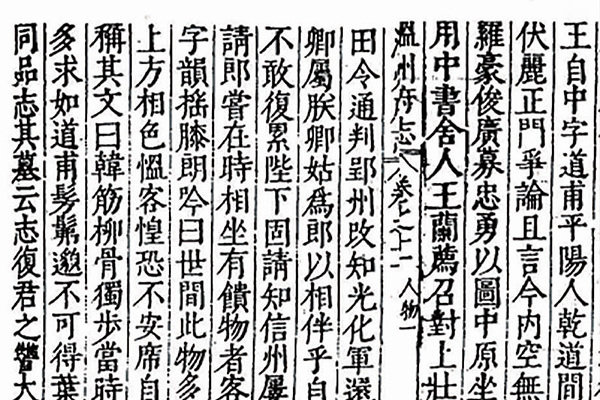 王自中字道甫平陽人乾道間
伏麗正門爭論且言今内空無
羅豪俊廣募忠勇以圖中原坐
用中書舍人王蘭薦召對上壯
温州府志 卷之十一 人物一
田令通判郢州改知光化軍還
卿屬朕卿姑爲郎以相伴乎自
不敢復累陛下固請知信州屢
請郎嘗在時相坐有饋物者客
字韻搖膝朗吟曰世間此物多
上方相色愠客惶恐不安席自
稱其文曰韓筋柳骨獨步當時
多求如道甫髣髴邈不可得葉
同品志其墓云志復君之讐大